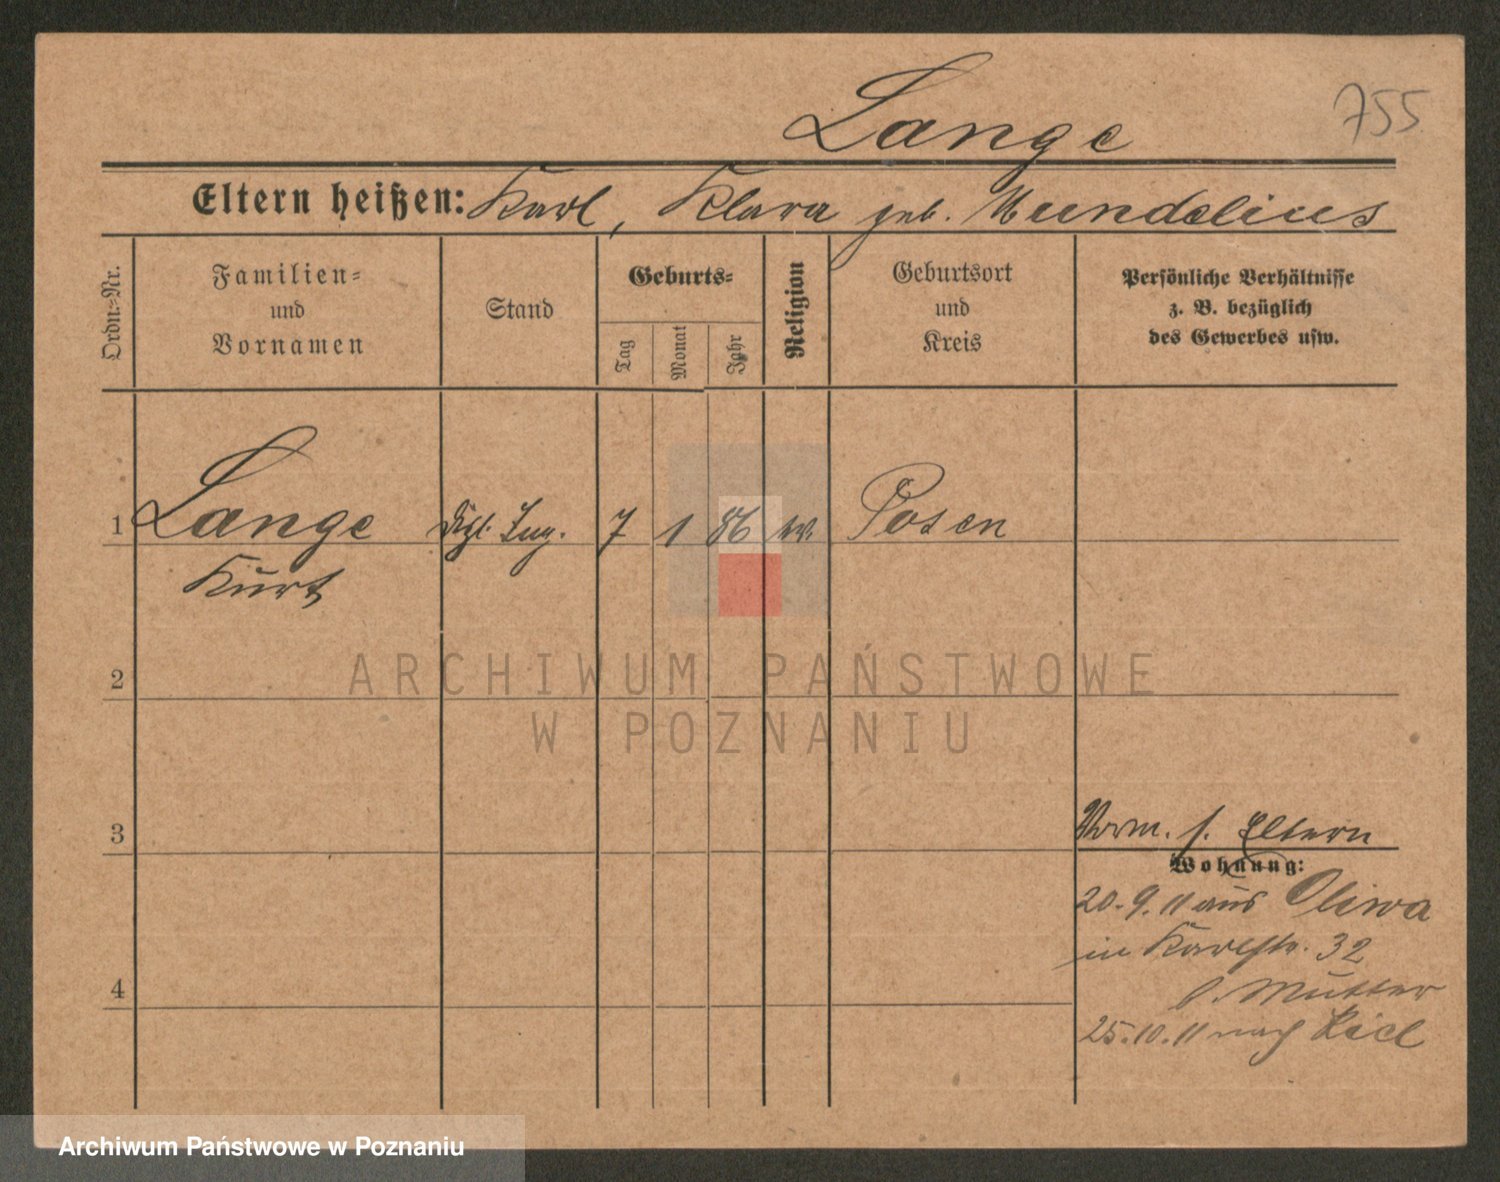 Lange
755
Eltern heißen: Karl, Klara geb. Mundelius
Ordn.-Nr.
Familien-
und
Vornamen
Stand
Geburts-
Tag
Monat
Jahr
Religion
Geburtsort
und
Kreis
Persönliche Verhältnisse
z. B. bezüglich
des Gewerbes usw.
1 Lange Dipl. Ing. 7 1 86 Posen
Kurt
2
3
Vorm. s. Eltern
Wohnung:
20.9.11 aus Oliwa
in Karlstr. 32
b. Mutter
4
25.10.11 nach Kiel
ARCHIWUM PAŃSTWOWE
W POZNANIU
Archiwum Państwowe w Poznaniu